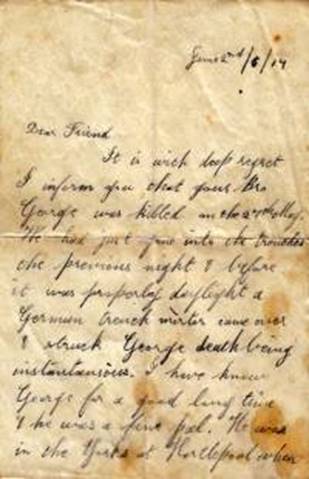 June 2nd/6/17
Dear Friend
It is with deep regret
I inform you that your Bro
George was killed on the 27th May.
We had just gone into the trenches
the previous night & before
it was properly daylight a
German trench morter came over
& struck George death being
instantansious. I have know
George for a good long time
& he was a fine pal. He was
in the Yorks at Hartlepool when